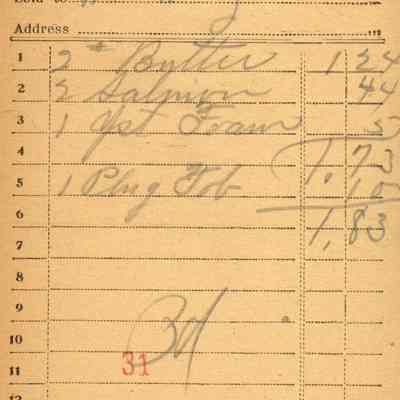 Sold to
Address 19
1 2# Butter 1 24
2 2 Salmon 44
3 1 Yst Foam 5
4 1.73
5 1 Plug Tob .10
6 1.83
7
8
9
10
11 31
12